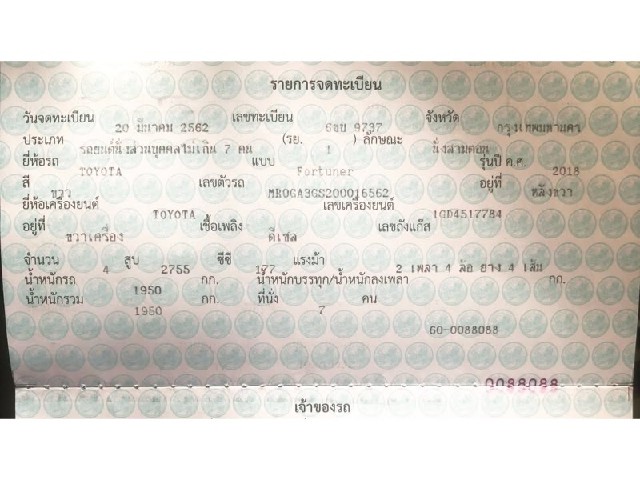 รายการจดทะเบียน
วันจดทะเบียน 20 มีนาคม 2562 เลขทะเบียน 9737 จังหวัด กรุงเทพมหานคร
ประเภท รถยนต์นั่งส่วนบุคคลไม่เกิน 7 คน (รย. 1 ) ลักษณะ นั่งสามตอน
ยี่ห้อรถ TOYOTA แบบ Fortuner รุ่นปี ค.ศ 2018
สี ขาว เลขตัวรถ MR0GA3GS200016562 อยู่ที่ หลังขวา
ยี่ห้อเครื่องยนต์ TOYOTA เลขเครื่องยนต์ 1GD4517784
อยู่ที่ ขวาเครื่อง เชื้อเพลิง ดีเซล เลขถังแก๊ส
จำนวน 4 สูบ 2755 ซีซี 177 แรงม้า 2 เพลา 4 ล้อ ยาง 4 เส้น
น้ำหนักรถ 1950 กก. น้ำหนักบรรทุก/น้ำหนักลงเพลา กก.
น้ำหนักรวม 1950 กก. ที่นั่ง 7 คน
60-0088088
0088088
เจ้าของรถ